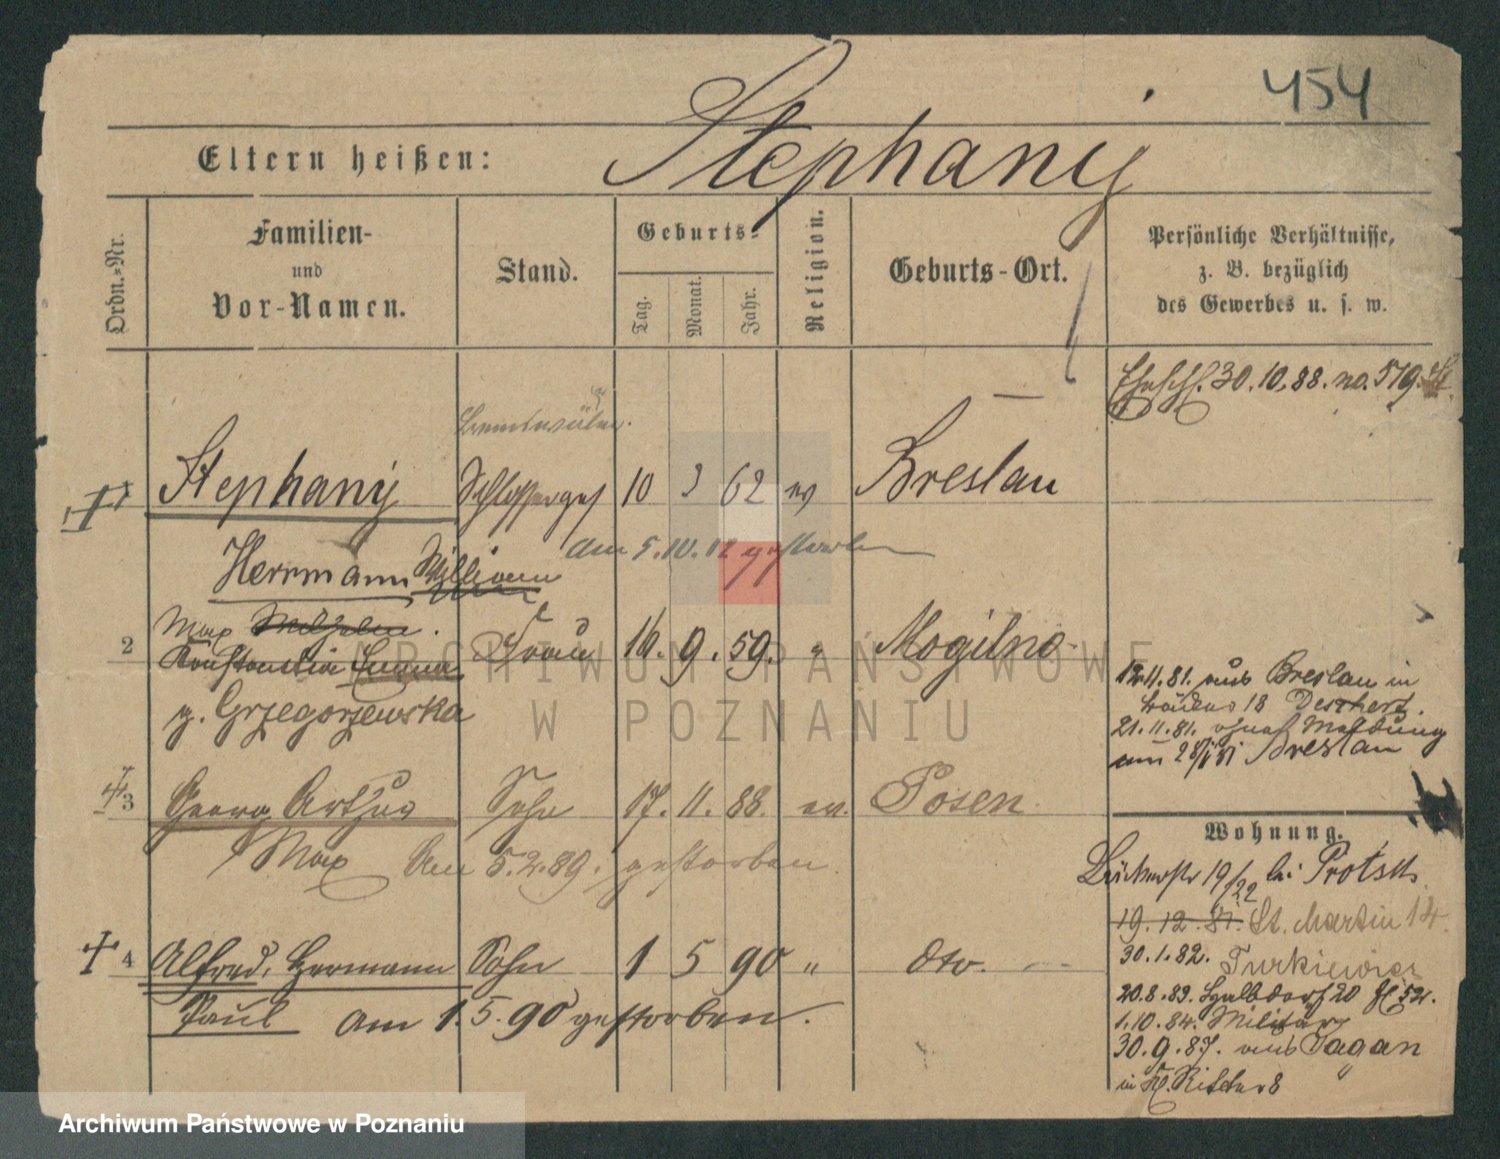 454
Eltern heißen: Stephany
Ordn.-Nr.
Familien- und Vor-Namen.
Stand.
Geburts-
Tag.
Monat.
Jahr.
Religion.
Geburts-Ort.
Persönliche Verhältnisse,
z. B. bezüglich
des Gewerbes u. s. w.
Eheschl. 30.10.88. no. 519.
1 Stephany Schlosserges 10 3 62 ev Breslau
Herrmann William am 5.10. gestorben
Max Wilhelm.
2 Frau 16. 9. 59. " Mogilno
Konstantia
g. Grzegorzewska
11.81. aus Breslau in
18
21.11.81. ohne Meldung
Breslau
3 Georg Arthur Sohn 17. 11. 88. ev. Posen
Max Am 5.2.89. gestorben
4 Alfred, Hermann Sohn 1 5 90 " dto.
Paul am 1.5.90 gestorben.
Wohnung.
19/22 bei
19.12.81. St. Martin 14.
30.1.82.
20.8.83. Halbdorf 20
1.10.84. Militär
30.9.87. aus Sagan
in Kl. Ritter 8
ARCHIWUM PAŃSTWOWE
W POZNANIU
Archiwum Państwowe w Poznaniu